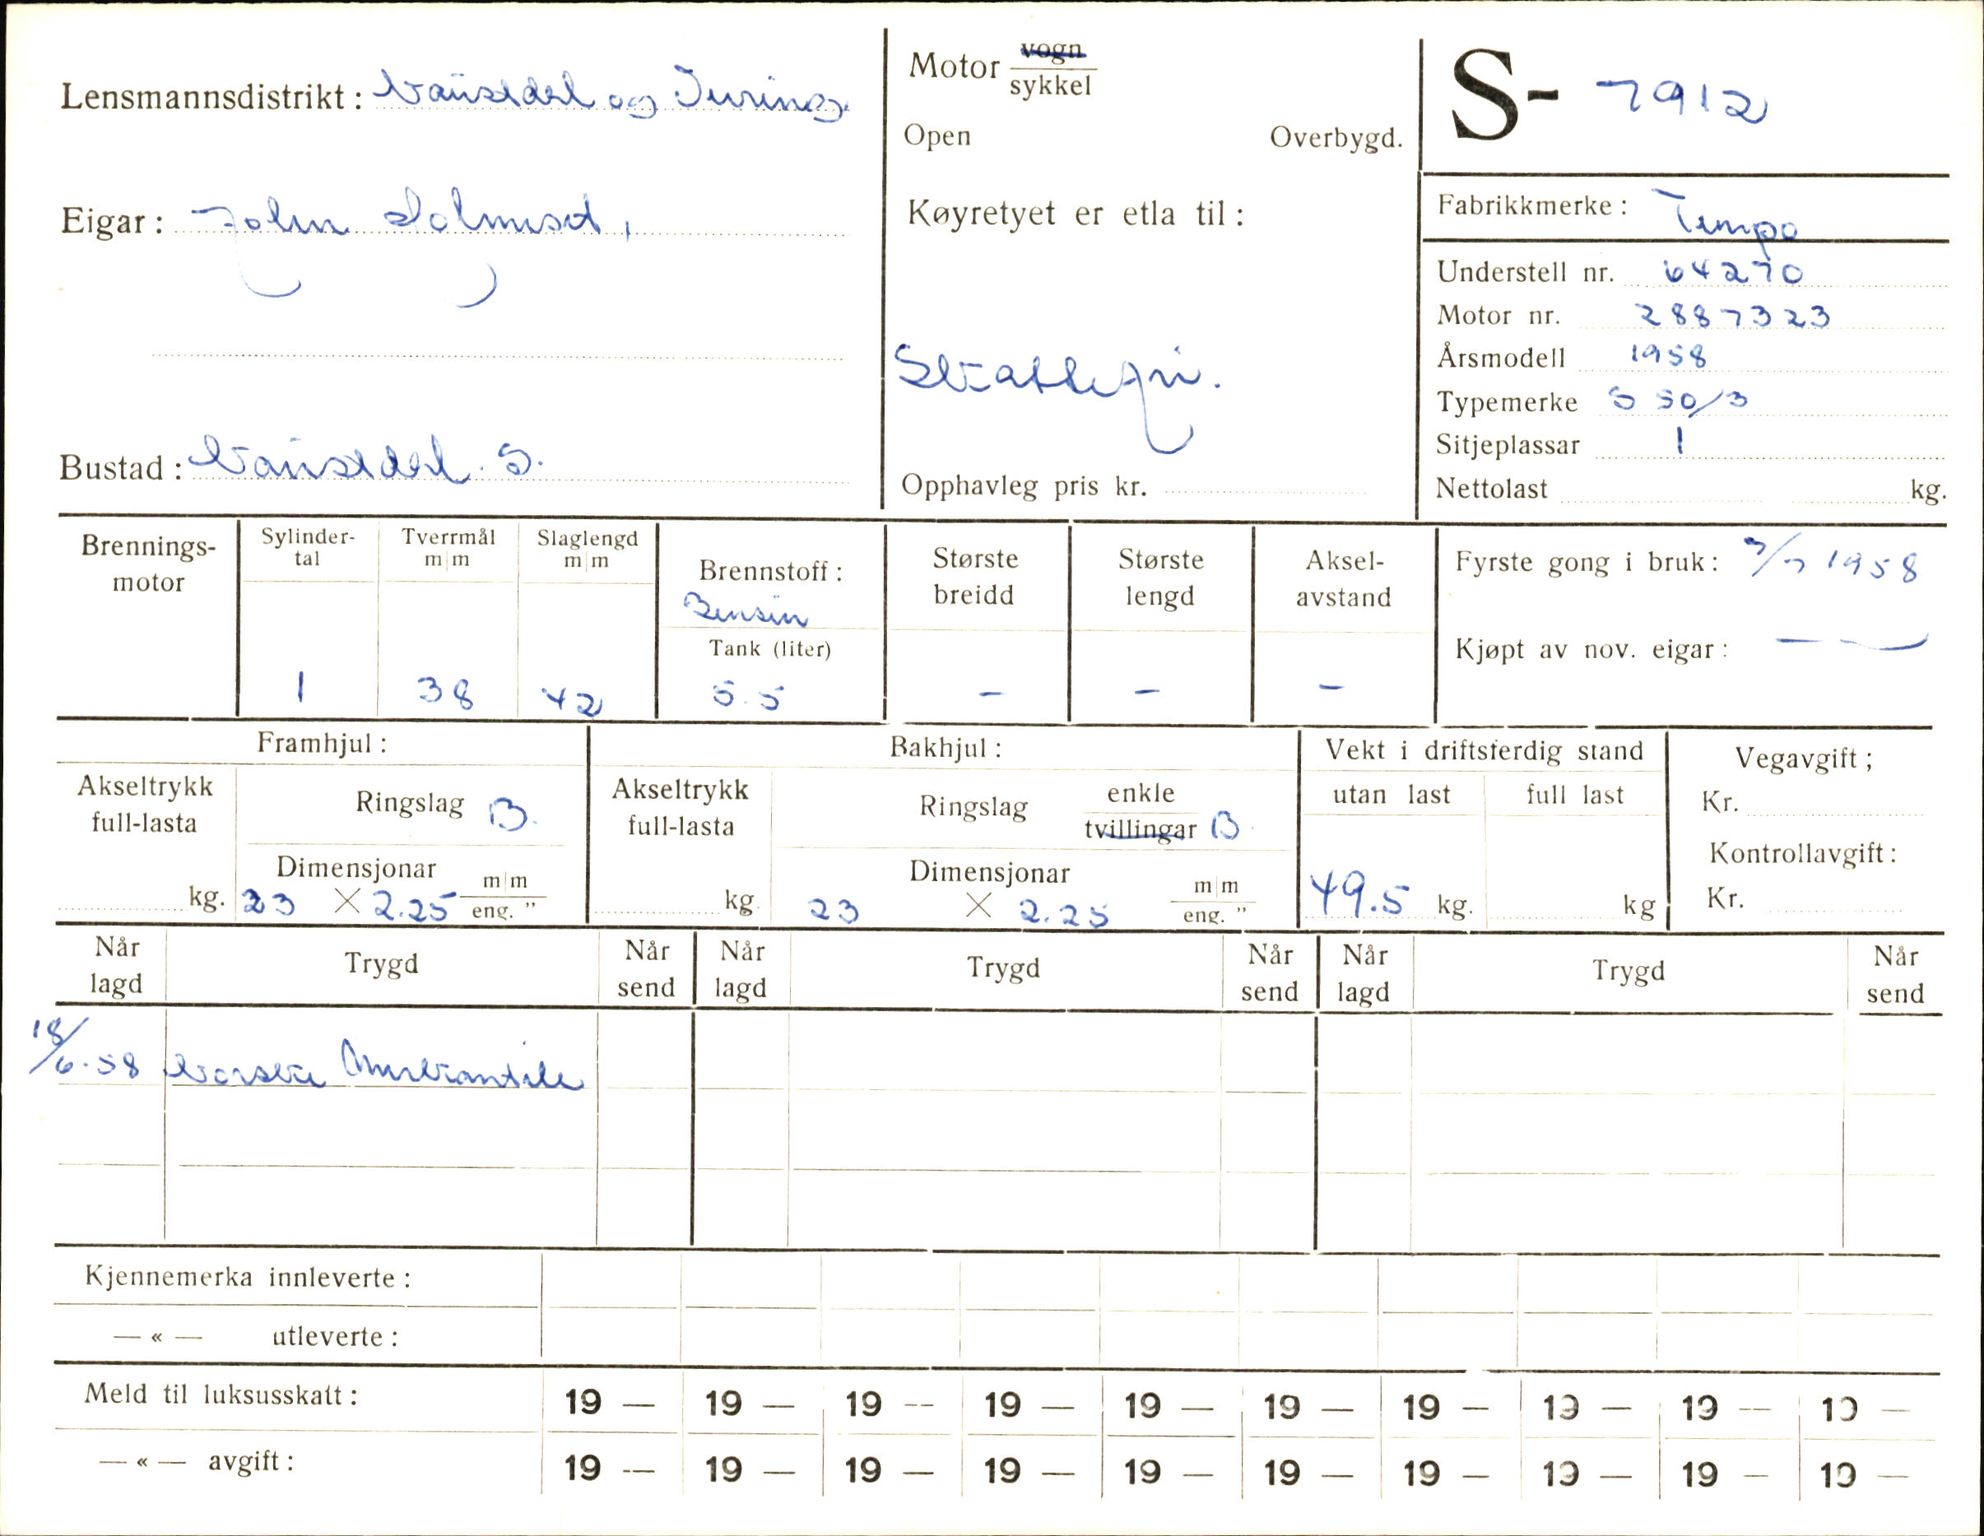 Lensmannsdistrikt: Naustdal og Jevnng.
Motor vogn
sykkel
Open Overbygd.
S- 7912
Eigar: John Solmset,
Køyretyet er etla til:
Skattefri.
Fabrikkmerke: Tempo
Understell nr. 64270
Motor nr. 2887323
Årsmodell 1958
Typemerke S 50/3
Sitjeplassar 1
Nettolast kg.
Bustad: Naustdal. S.
Opphavleg pris kr.
Brennings-
motor
Sylinder-
tal
1
Tverrmål
m/m
38
Slaglengd
m/m
42
Brennstoff:
Bensin
Tank (liter)
5.5
Største
breidd
–
Største
lengd
–
Aksel-
avstand
–
Fyrste gong i bruk: 7/7 1958
Kjøpt av nov. eigar: — —
Framhjul:
Akseltrykk
full-lasta
kg.
Ringslag B.
Dimensjonar
23 × 2.25 m/m
eng. "
Bakhjul:
Akseltrykk
full-lasta
kg.
Ringslag enkle
tvillingar B.
Dimensjonar
23 × 2.25 m/m
eng. "
Vekt i driftsferdig stand
utan last full last
49.5 kg. kg
Vegavgift;
Kr.
Kontrollavgift:
Kr.
Når
lagd
Trygd
Når
send
Når
lagd
Trygd
Når
send
Når
lagd
Trygd
Når
send
18/6.58 Norske Merkantile
Kjennemerka innleverte:
— « — utleverte:
Meld til luksusskatt: 19 — 19 — 19 — 19 — 19 — 19 — 19 — 19 — 19 — 19 —
— « — avgift: 19 — 19 — 19 — 19 — 19 — 19 — 19 — 19 — 19 — 19 —